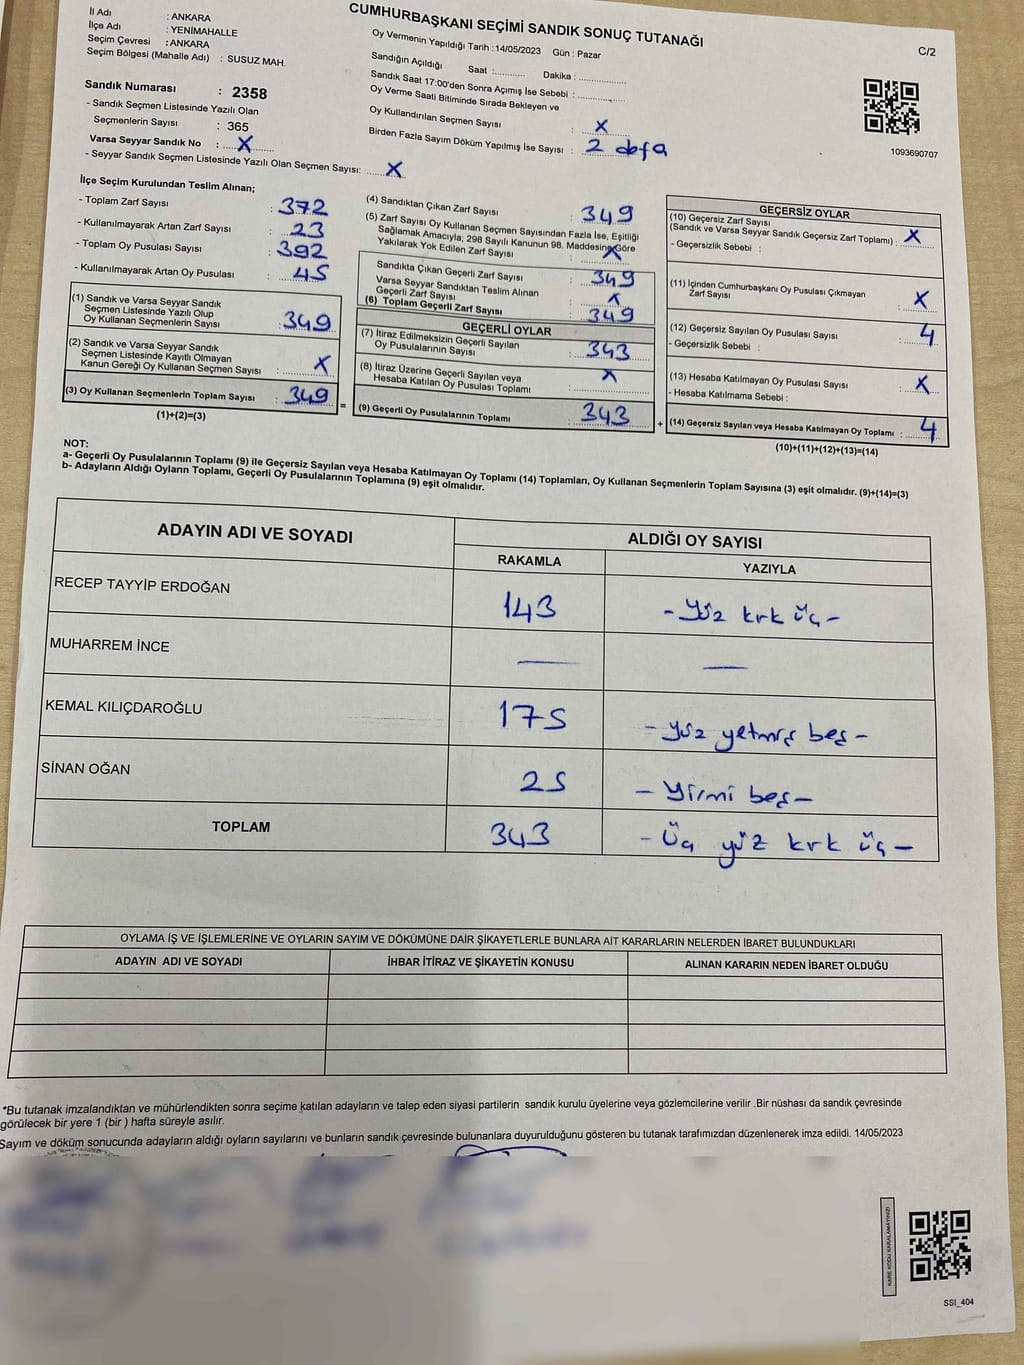 CUMHURBAŞKANI SEÇİMİ SANDIK SONUÇ TUTANAĞI
C/2
İl Adı : ANKARA
İlçe Adı : YENİMAHALLE
Seçim Çevresi : ANKARA
Seçim Bölgesi (Mahalle Adı) : SUSUZ MAH.
Sandık Numarası : 2358
- Sandık Seçmen Listesinde Yazılı Olan
Seçmenlerin Sayısı : 365
Varsa Seyyar Sandık No : X
- Seyyar Sandık Seçmen Listesinde Yazılı Olan Seçmen Sayısı: X
Oy Vermenin Yapıldığı Tarih : 14/05/2023 Gün : Pazar
Sandığın Açıldığı Saat :........... Dakika : ................
Sandık Saat 17:00'den Sonra Açımış İse Sebebi : ................
Oy Verme Saati Bitiminde Sırada Bekleyen ve
Oy Kullandırılan Seçmen Sayısı : X
Birden Fazla Sayım Döküm Yapılmış İse Sayısı : 2 defa
1093690707
İlçe Seçim Kurulundan Teslim Alınan;
- Toplam Zarf Sayısı : 372
- Kullanılmayarak Artan Zarf Sayısı : 23
- Toplam Oy Pusulası Sayısı : 392
- Kullanılmayarak Artan Oy Pusulası : 45
(1) Sandık ve Varsa Seyyar Sandık
Seçmen Listesinde Yazılı Olup
Oy Kullanan Seçmenlerin Sayısı : 349
(2) Sandık ve Varsa Seyyar Sandık
Seçmen Listesinde Kayıtlı Olmayan
Kanun Gereği Oy Kullanan Seçmen Sayısı : X
(3) Oy Kullanan Seçmenlerin Toplam Sayısı : 349
(1)+(2)=(3)
=
(4) Sandıktan Çıkan Zarf Sayısı : 349
(5) Zarf Sayısı Oy Kullanan Seçmen Sayısından Fazla İse, Eşitliği
Sağlamak Amacıyla; 298 Sayılı Kanunun 98. Maddesine Göre
Yakılarak Yok Edilen Zarf Sayısı : X
Sandıkta Çıkan Geçerli Zarf Sayısı : 349
Varsa Seyyar Sandıktan Teslim Alınan
Geçerli Zarf Sayısı : X
(6) Toplam Geçerli Zarf Sayısı : 349
GEÇERLİ OYLAR
(7) İtiraz Edilmeksizin Geçerli Sayılan
Oy Pusulalarının Sayısı : 343
(8) İtiraz Üzerine Geçerli Sayılan veya
Hesaba Katılan Oy Pusulası Toplamı : X
(9) Geçerli Oy Pusulalarının Toplamı : 343
+
GEÇERSİZ OYLAR
(10) Geçersiz Zarf Sayısı
(Sandık ve Varsa Seyyar Sandık Geçersiz Zarf Toplamı) : X
- Geçersizlik Sebebi :
(11) İçinden Cumhurbaşkanı Oy Pusulası Çıkmayan
Zarf Sayısı : X
(12) Geçersiz Sayılan Oy Pusulası Sayısı : 4
- Geçersizlik Sebebi :
(13) Hesaba Katılmayan Oy Pusulası Sayısı : X
- Hesaba Katılmama Sebebi :
(14) Geçersiz Sayılan veya Hesaba Katılmayan Oy Toplamı : 4
(10)+(11)+(12)+(13)=(14)
NOT:
a- Geçerli Oy Pusulalarının Toplamı (9) ile Geçersiz Sayılan veya Hesaba Katılmayan Oy Toplamı (14) Toplamları, Oy Kullanan Seçmenlerin Toplam Sayısına (3) eşit olmalıdır. (9)+(14)=(3)
b- Adayların Aldığı Oyların Toplamı, Geçerli Oy Pusulalarının Toplamına (9) eşit olmalıdır.
ADAYIN ADI VE SOYADI ALDIĞI OY SAYISI
RAKAMLA YAZIYLA
RECEP TAYYİP ERDOĞAN 143 - Yüz kırk üç -
MUHARREM İNCE — —
KEMAL KILIÇDAROĞLU 175 - Yüz yetmiş beş -
SİNAN OĞAN 25 - Yirmi beş -
TOPLAM 343 - Üç yüz kırk üç -
OYLAMA İŞ VE İŞLEMLERİNE VE OYLARIN SAYIM VE DÖKÜMÜNE DAİR ŞİKAYETLERLE BUNLARA AİT KARARLARIN NELERDEN İBARET BULUNDUKLARI
ADAYIN ADI VE SOYADI İHBAR İTİRAZ VE ŞİKAYETİN KONUSU ALINAN KARARIN NEDEN İBARET OLDUĞU
*Bu tutanak imzalandıktan ve mühürlendikten sonra seçime katılan adayların ve talep eden siyasi partilerin sandık kurulu üyelerine veya gözlemcilerine verilir .Bir nüshası da sandık çevresinde
görülecek bir yere 1 (bir ) hafta süreyle asılır.
Sayım ve döküm sonucunda adayların aldığı oyların sayılarını ve bunların sandık çevresinde bulunanlara duyurulduğunu gösteren bu tutanak tarafımızdan düzenlenerek imza edildi. 14/05/2023
KARE KODU KARALAMAYINIZ!
SSI_404